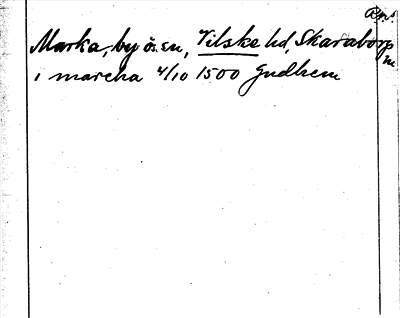 Marka, by ö. sn, Vilske hd, Skaraborgs
i marcha 4/10 1500 Gudhem